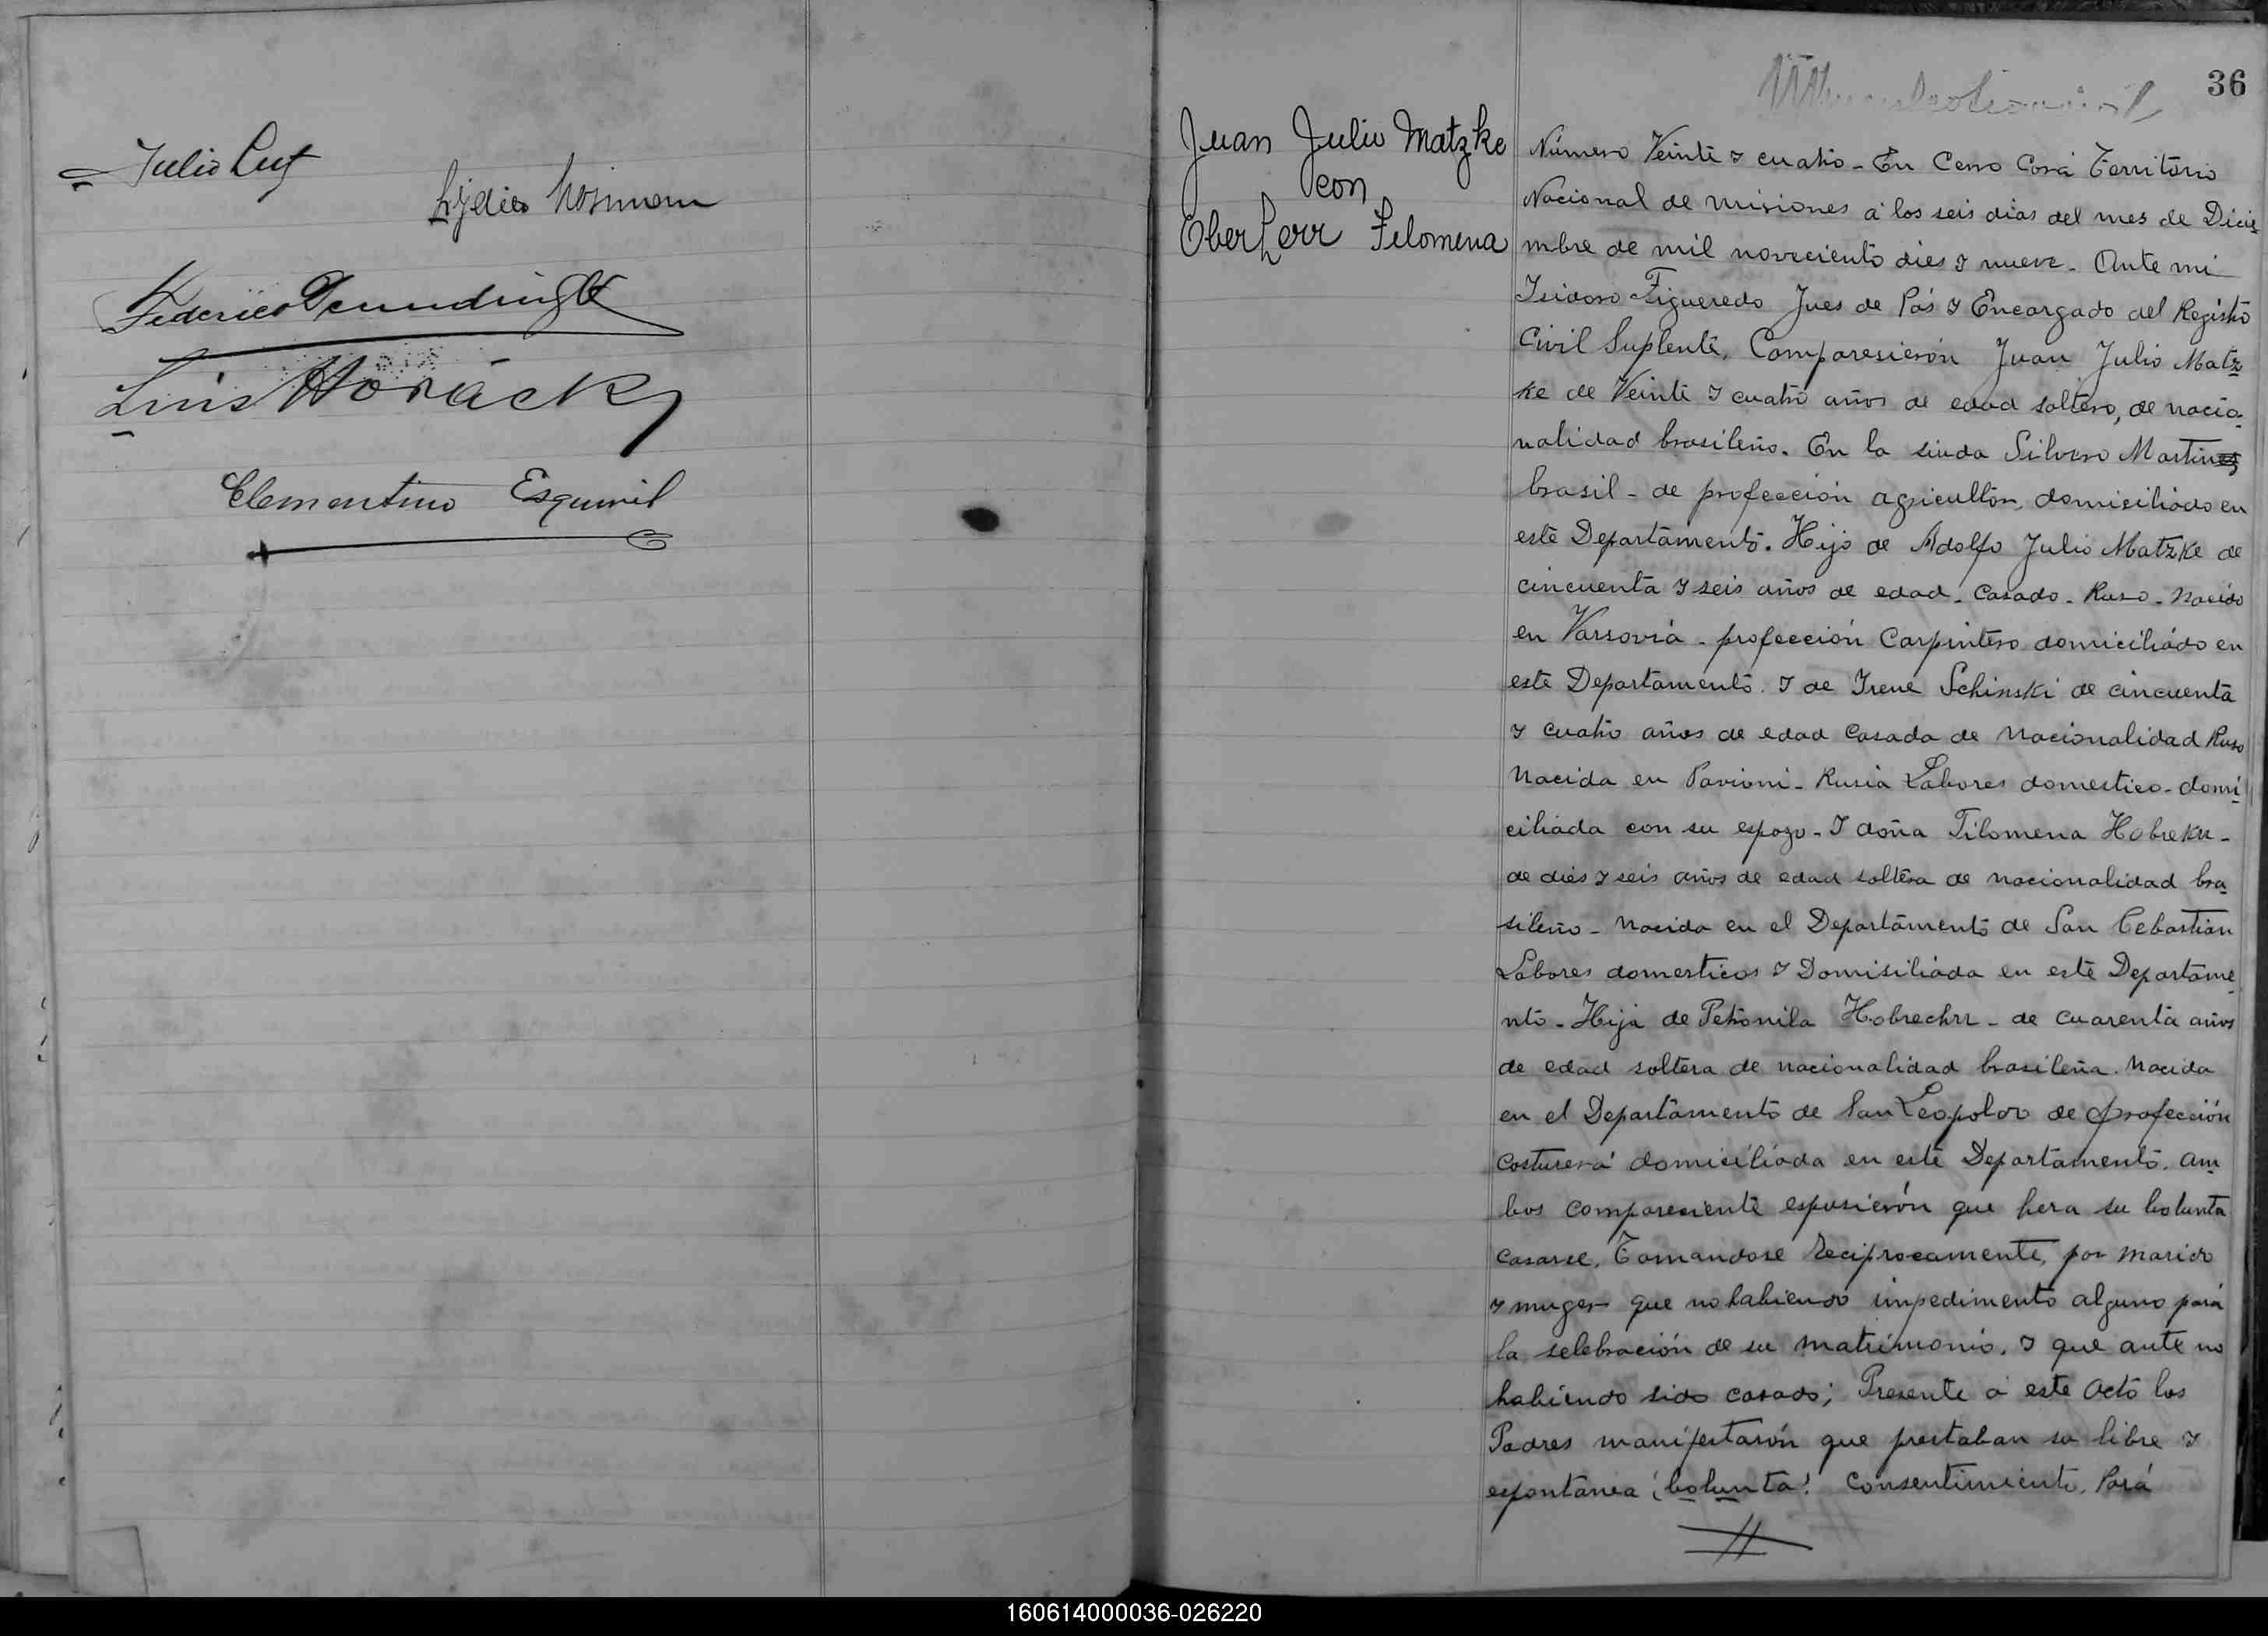 Julio Lut
Lydia
Federico
Luis Horacky
Clementino Esquivil
36
Juan Julio Matzke
con
Oberherr Filomena
Número Veinte y cuatro - En Cerro Corá Territorio
Nacional de misiones á los seis dias del mes de Dicie
mbre de mil noveciento dies y nueve - Ante mi
Isidoro Figueredo Jues de Pás y Encargado del Registro
Civil Suplente, Comparesierón Juan Julio Matz
ke de Veinte y cuatro años de edad soltero, de nacio
nalidad brasileño. En la siuda Silvero Martines
brasil - de profección agricultor, domiciliado en
este Departamento. Hijo de Adolfo Julio Matzke de
cincuenta y seis años de edad - Casado - Ruso - Nacido
en Varsovia - profección Carpintero domiciliádo en
este Departamento. Y de Irene Schinski de cincuenta
y cuatro años de edad Casada de Nacionalidad Ruso
Nacida en Pavioni - Rusia Labores domestico - domi
ciliada con su espozo - Y doña Filomena Hobrekr -
de dies y seis años de edad soltera de nacionalidad bra
sileño - Nacida en el Departámento de San Cebastian
Labores domesticos y Domisiliáda en este Departame
nto - Hija de Petronila Hobrechrr - de Cuarenta años
de edad soltera de nacionalidad brasileña. Nacida
en el Departámento de San Leopoldo de profección
Costurera domiciliada en este Departamento. Am
bos compareciente espusierón que hera su bolunta
casarse, Tomandose reciprocamente, por marido
y muger que no habiendo impedimento alguno pará
la selebración de su matrimonio. Y que ante no
habiendo sido casado; Presente á este Acto los
Padres manifestarón que prestaban su libre y
espontanea (bolunta) Consentimiento. Pará
160614000036-026220